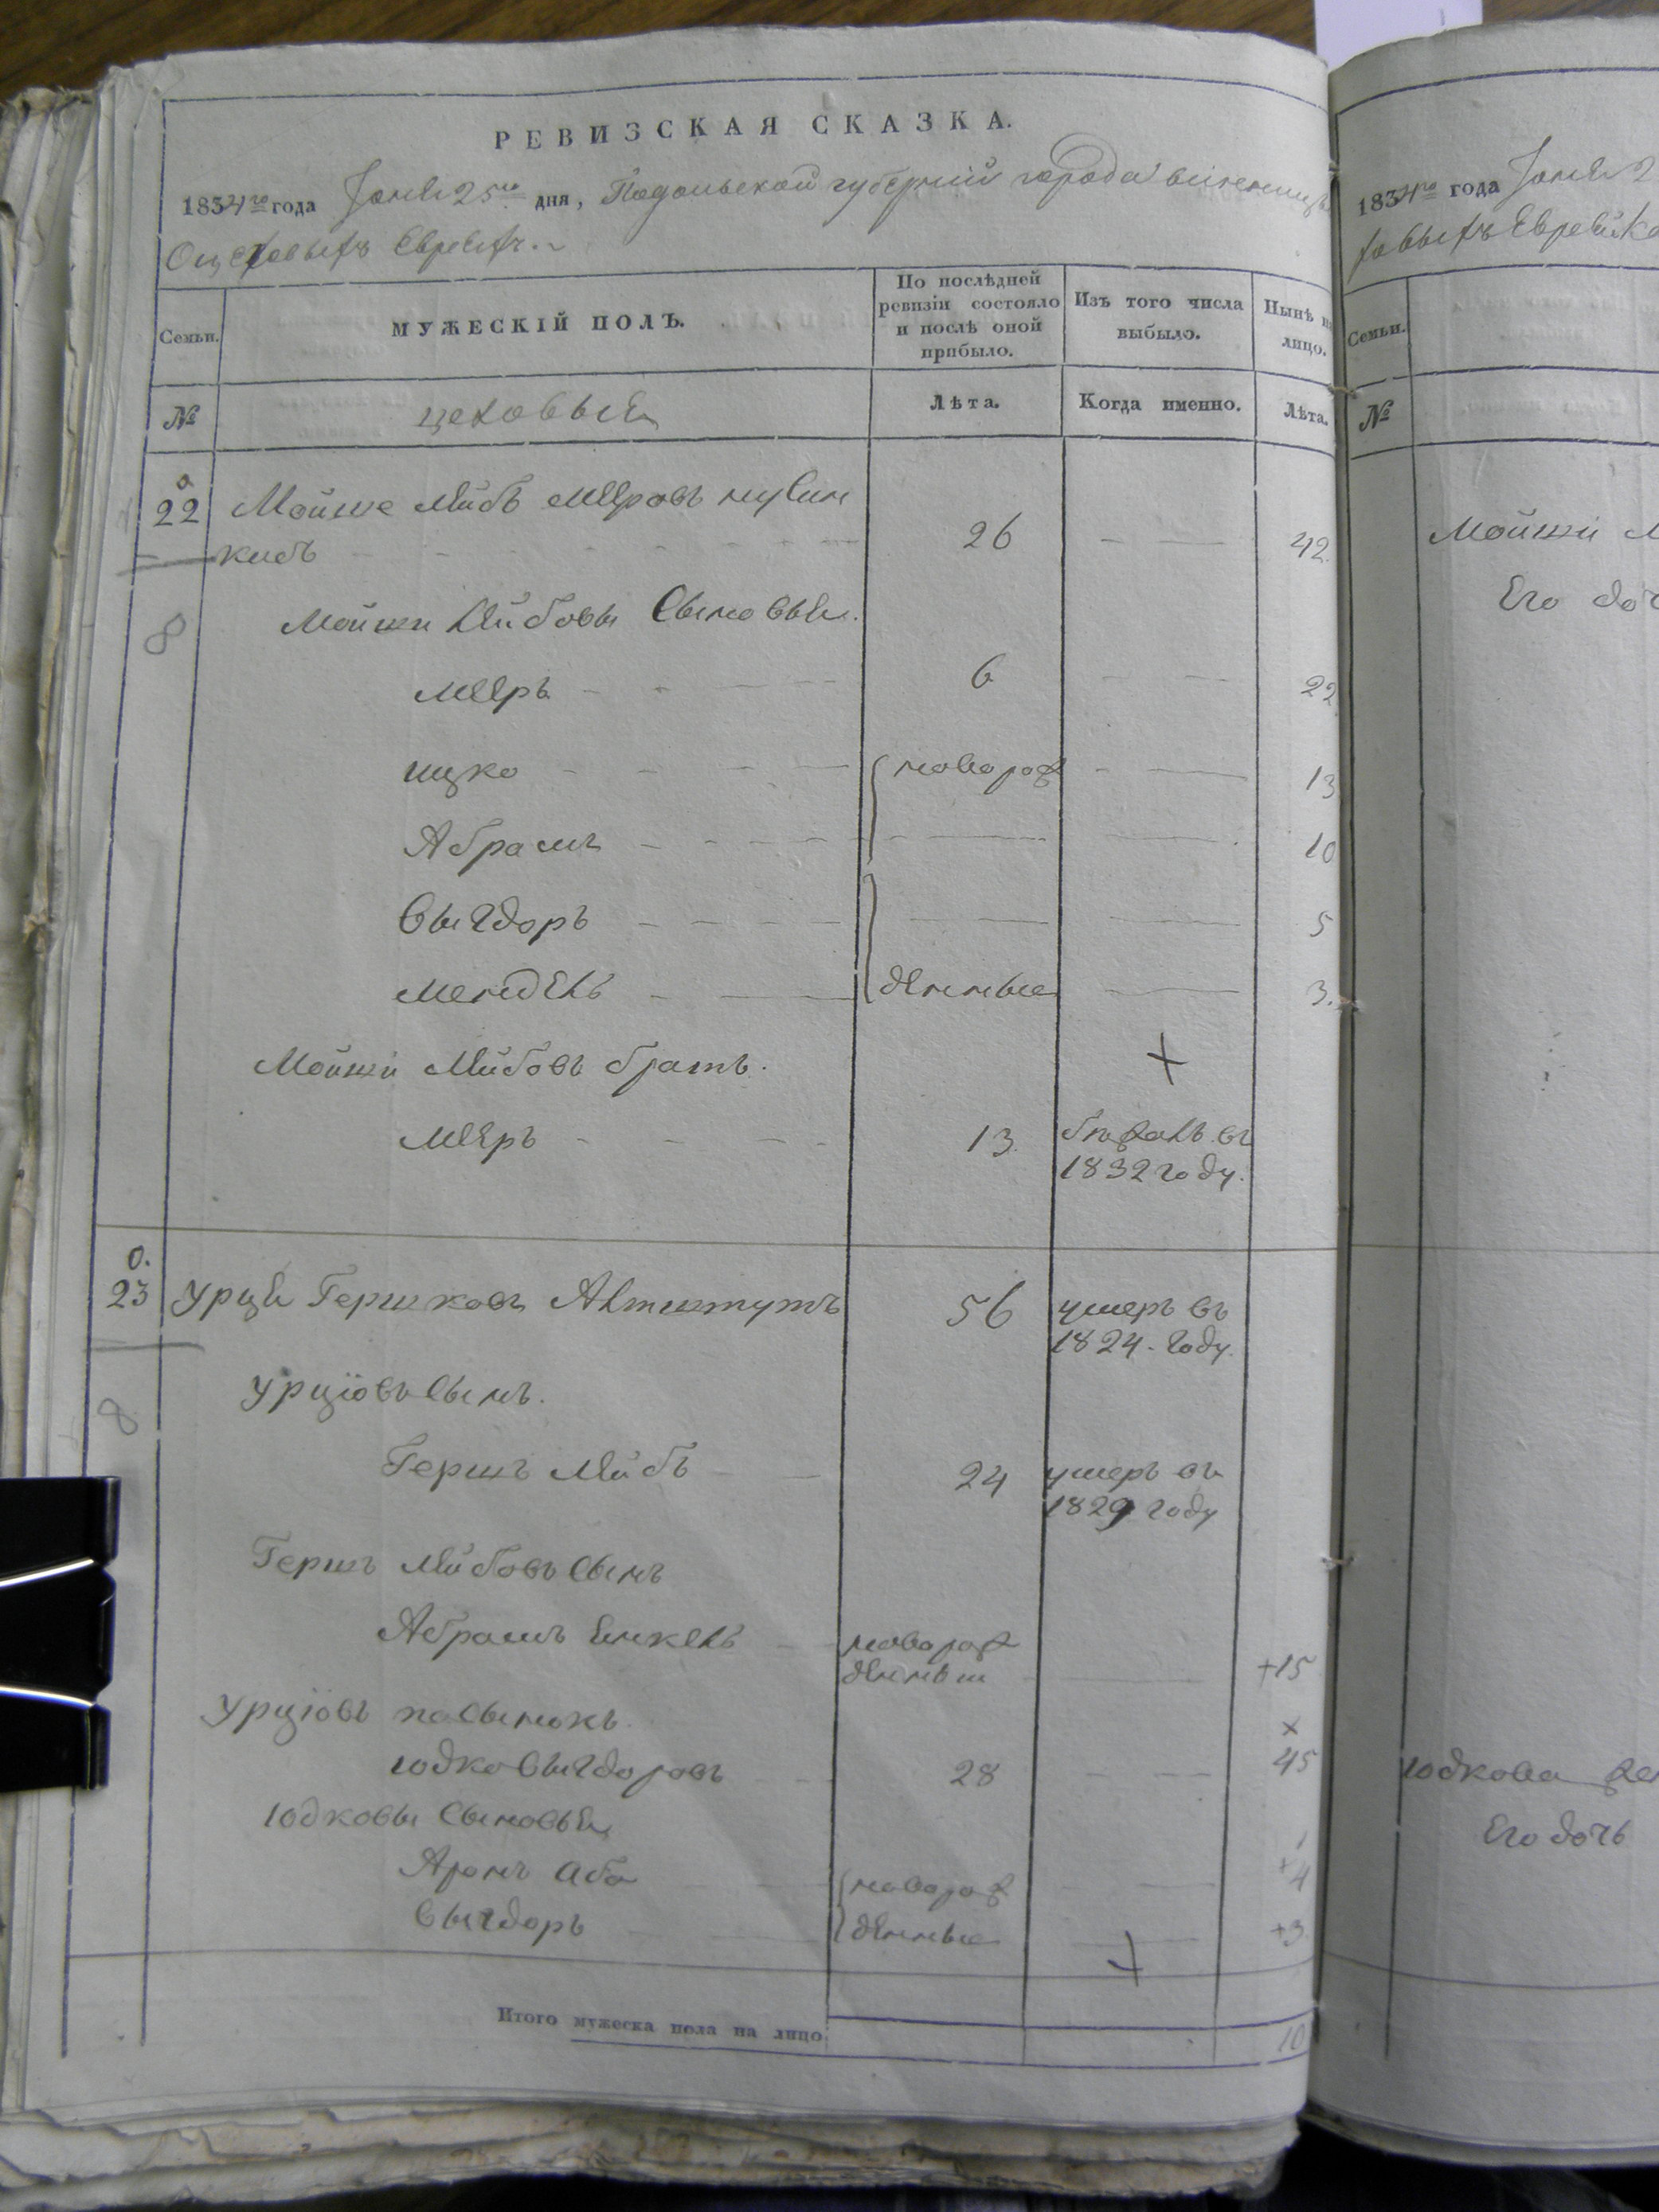 РЕВИЗСКАЯ СКАЗКА.
1834го года Іюня 25го дня, Подольской губерній города винницы
О цеховыхъ Евреяхъ.
Семьи.
МУЖЕСКІЙ ПОЛЪ.
По послѣдней ревизіи состояло и послѣ оной прибыло.
Изъ того числа выбыло.
Нынѣ на лицо.
№
цеховые
Лѣта.
Когда именно.
Лѣта.
22 Мойше Лейбъ Мееровъ
26 42
8
Мойши Лейбовы сыновья.
Мееръ 6 22
ицко новорож 13
Абрамъ 10
Выгдоръ 5
Мендель денные 3.
Мойши Лейбовъ братъ.
Мееръ 13. бѣжалъ въ
1832 году.
0.
23 Урцѣ Гершковъ Альтштутъ 56 умеръ въ
1824. году.
8
Урціовъ сынъ.
Гершъ Лейбъ 24 умеръ въ
1829 году
Гершъ Лейбовъ сынъ
Абрамъ Янкель новорож
денный +15
Урціовъ пасынокъ.
Юдко Выгдоровъ 28 45
Юдковы сыновья
Аронъ Аба новорож +4
Выгдоръ денные +3.
Итого мужеска пола на лицо 10
1834го года Іюня 2
Семьи.
№
Мойши
Его доч
Юдкова же
Его дочь